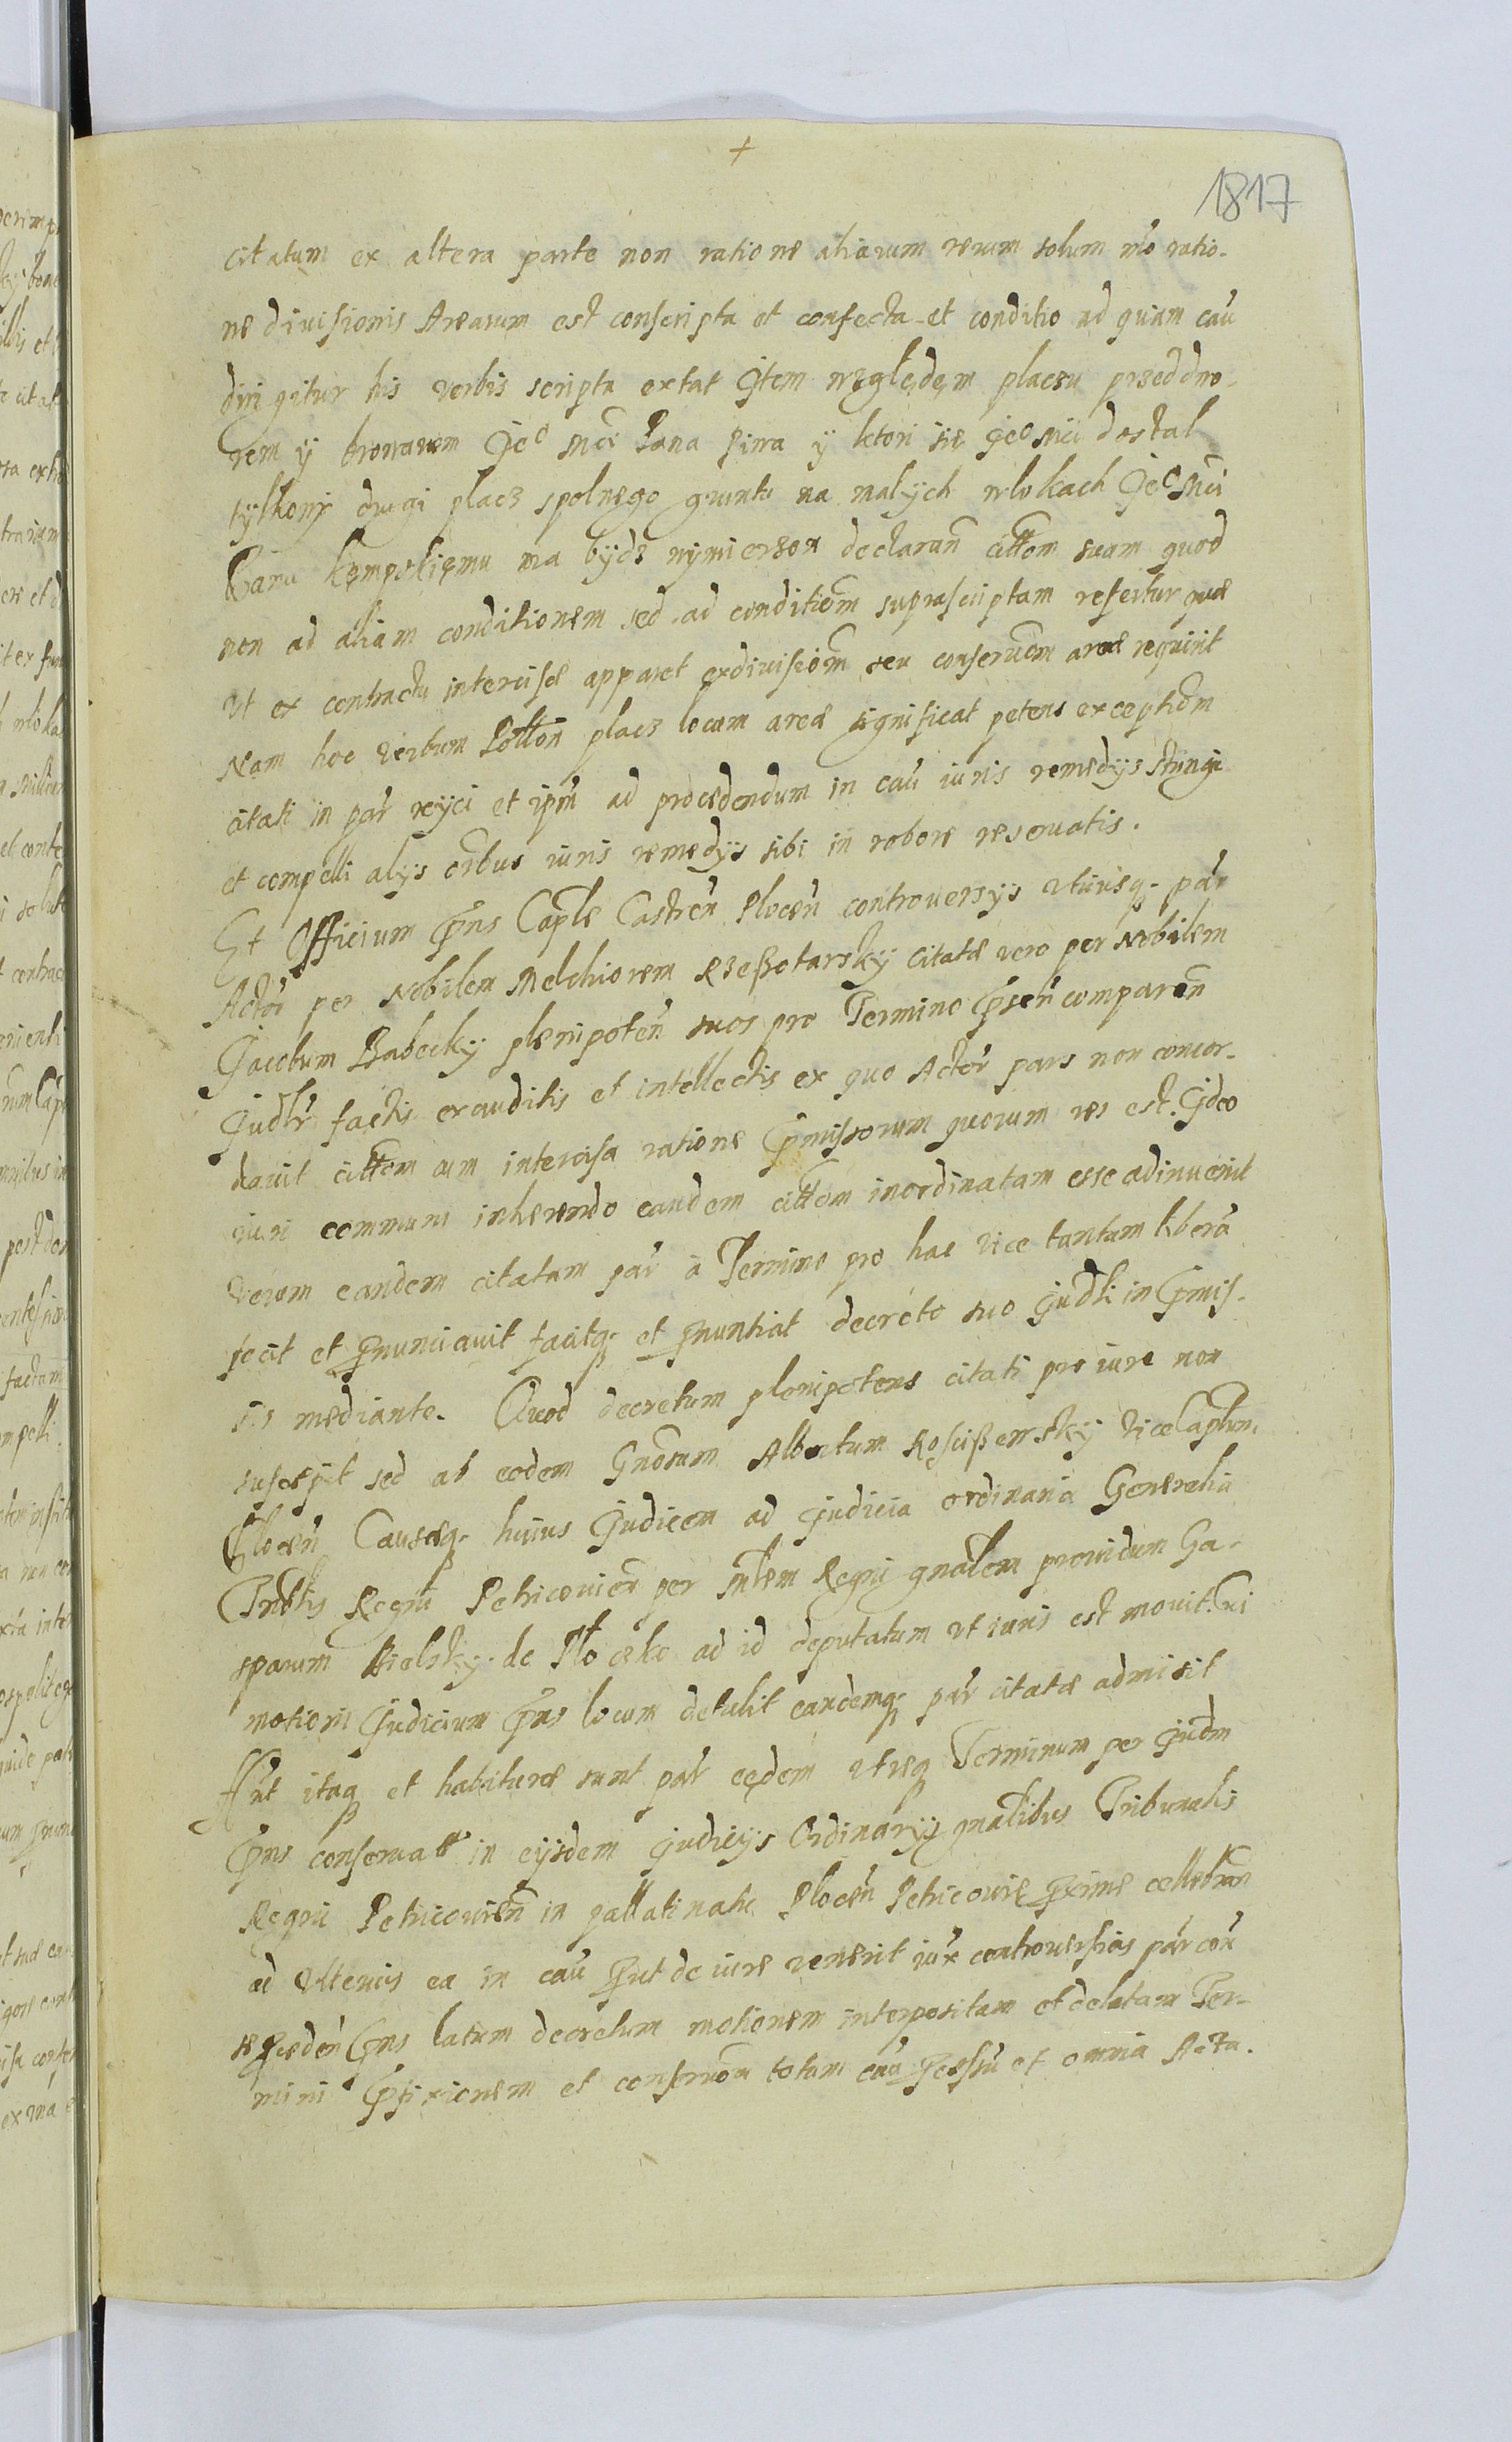 +
1817
citatum ex altera parte non ratione aliarum rerum solum mo ratio-
ne divisionis Arearum est conscripta et confecta et conditio ad quam cau
dirigitur his verbis scripta extat Item względem placzu przed dwo-
rem y browarem Jeo Mci Pana Piwa y ktori sie Jeo Mci dostal
tylkony drugi placz spolnego gruntu na malych wlokach Jeo Mci
Panu Kempskiemu ma bydz wymierzon declaran cittom suam quod
non ad aliam conditionem sed ad conditiom suprascriptam refertur quæ
ut ex contractu intercisæ apparet exdivisiom seu conservom areæ requirit
Nam hoc verbum placz locum areæ significat petens exceptiom
citati in par reyci et ipm ad procedendum in cau iuris remedys stringi
et compelli alys oibus iuris remedys sibi in robore reservatis.
Et Officium Pns Caple Castren Plocen controversys utriusq. par
Actor per Nobilem Melchiorem Rzeßotarsky citatæ vero per Nobilem
Jacobum Babecky plenipoten suos pro Termino Psen comparen
Judlr factis exauditis et intellectis ex quo Actor pars non concor-
davit cittom cum intercisa ratione Pmissorum quorum res est. Ideo
iuri communi inherendo eandem cittom inordinatam esse adinvenit
verum eandem citatam par à Termino pro hac vice tantum libera
fecit et pnunciavit facitq. et pnuntiat decreto suo Judli in Pmis-
sis mediante. Quod decretum plenipotens citati pro iure non
suscepit sed ab eodem Gnosum Albertum Koscißewsky viceCaptn.
Plocen Causæq. huius Judicem ad Judicia ordinaria Generalia
Tribtis Regni Petricovien per Mlem Regni gnalem providum Ga-
sparum Bielsky de Plocko ad id deputatum ut iuris est movit. Cui
motioni Judicium Pns locum detulit eandemq. par citatæ admisit
Hnt itaq et habituræ sunt par eædem utræq Terminum per Judm
Pns conservatt in eijsdem Judicys Ordinarys gnalibus Tribunalis
Regni Petricovien in pallatinatu Plocen Petricoviæ pxime cellebran
ad ulterius ea in cau put de iure venerit iux controversias par cor
se pceden Pns latum decretum motionem interpositam et delatam Ter-
mini Pfixionem et conservom totam cau pcessu et omnia Acta.